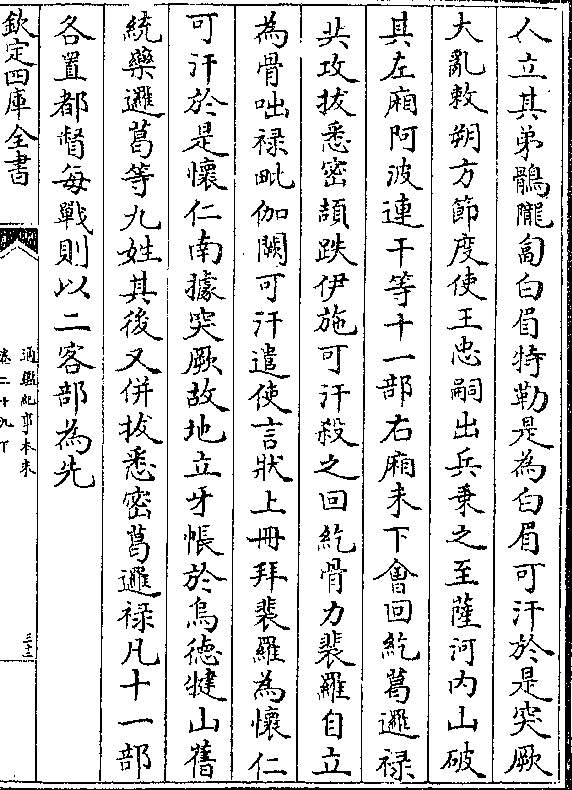 人立其弟鶻隴匐白眉特勒是為白眉可汗於是突厥
大亂敕朔方節度使王忠嗣出兵乗之至薩河内山破
其左廂阿波連干等十一部右廂未下會回紇葛邏禄
共攻拔悉密頡跌伊施可汗殺之回紇骨力裴羅自立
為骨咄禄毗伽闕可汗遣使言狀上冊拜裴羅為懷仁
可汗於是懷仁南據突厥故地立牙帳於烏德犍山舊
統藥邏葛等九姓其後又併拔悉密葛邏禄凡十一部
各置都督每戰則以二客部為先
欽定四庫全書
通鑑紀事本末
卷二十九下
三十二